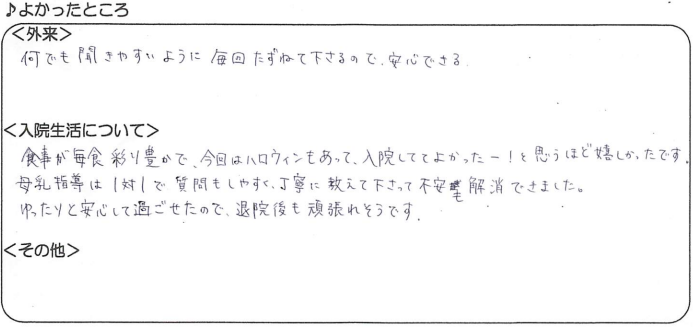 ♪よかったところ
＜外来＞
何でも聞きやすいように毎回たずねて下さるので、安心できる
＜入院生活について＞
食事が毎食彩り豊かで、今回はハロウィンもあって、入院しててよかったー！と思うほど嬉しかったです。
母乳指導は1対1で質問もしやすく、丁寧に教えて下さって不安も解消できました。
ゆったりと安心して過ごせたので、退院後も頑張れそうです。
＜その他＞